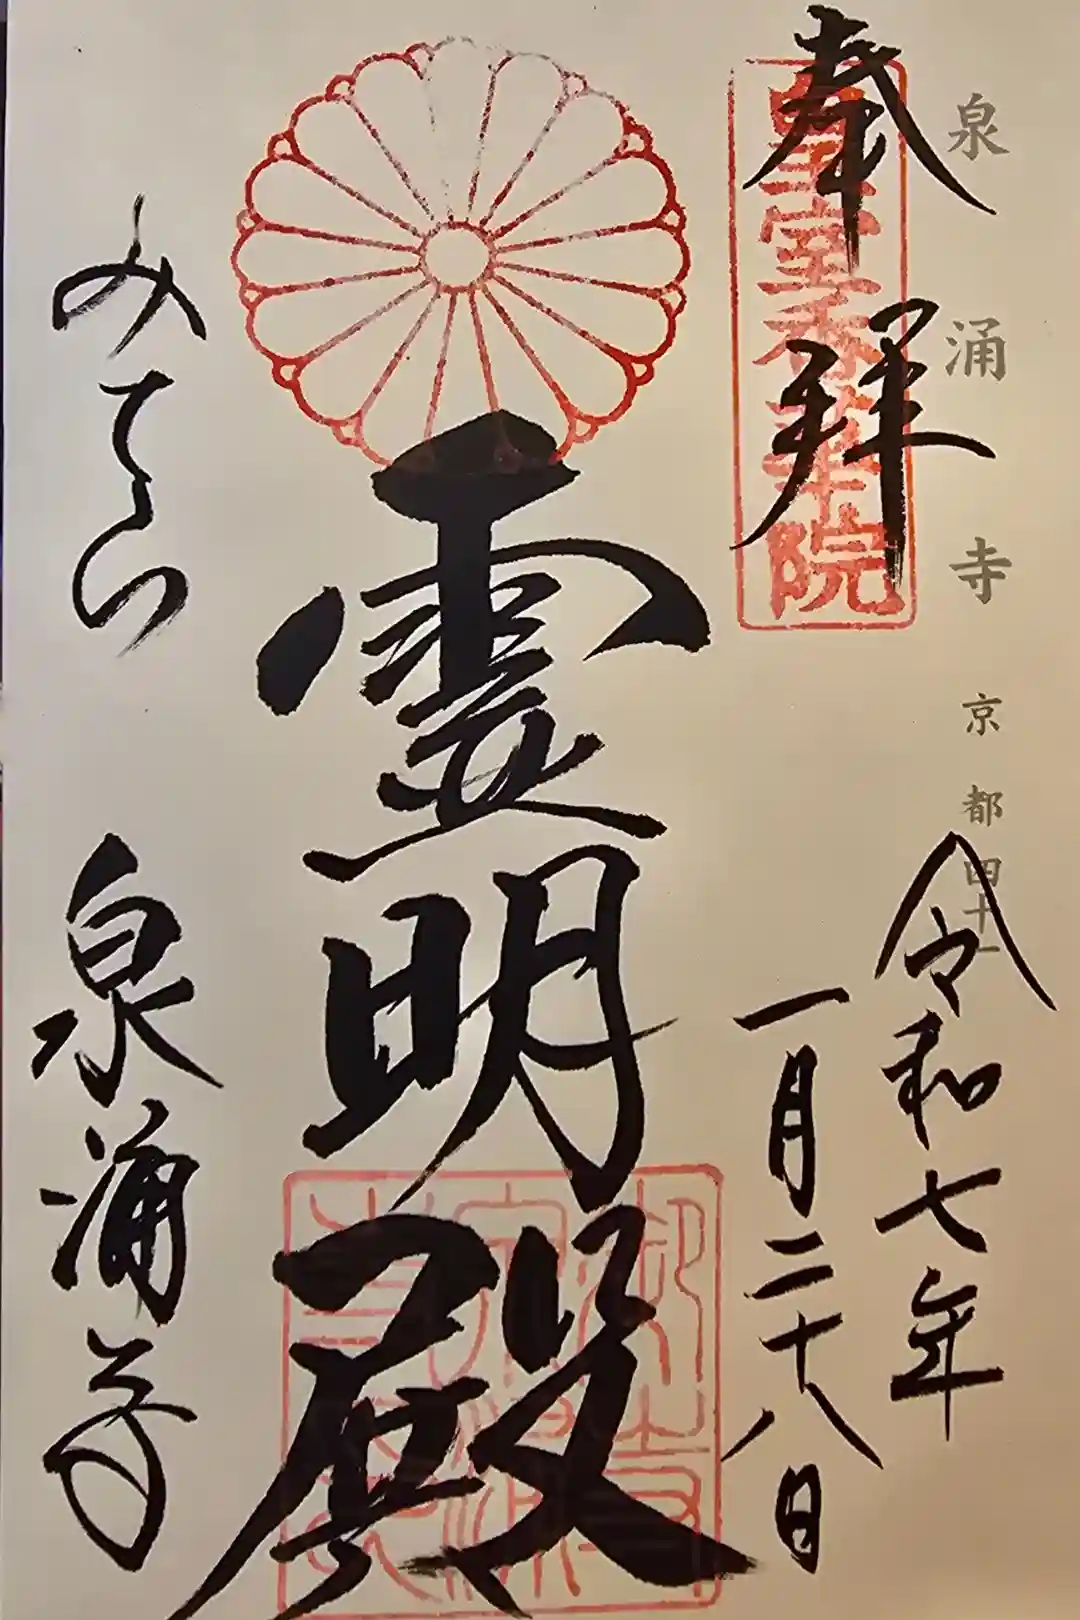 泉涌寺 京都四十一
奉拝
皇室香華院
令和七年
一月二十八日
霊明殿
みてら
泉涌寺